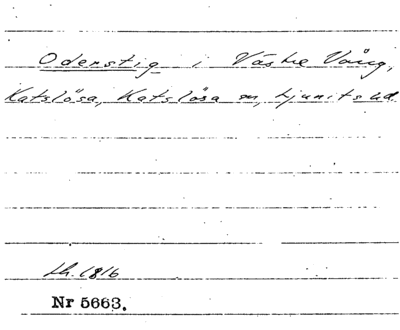 Odenstig i Västre Vång,
Katslösa, Katslösa sn, Ljunits hd
Lh. 1816
Nr 5663.